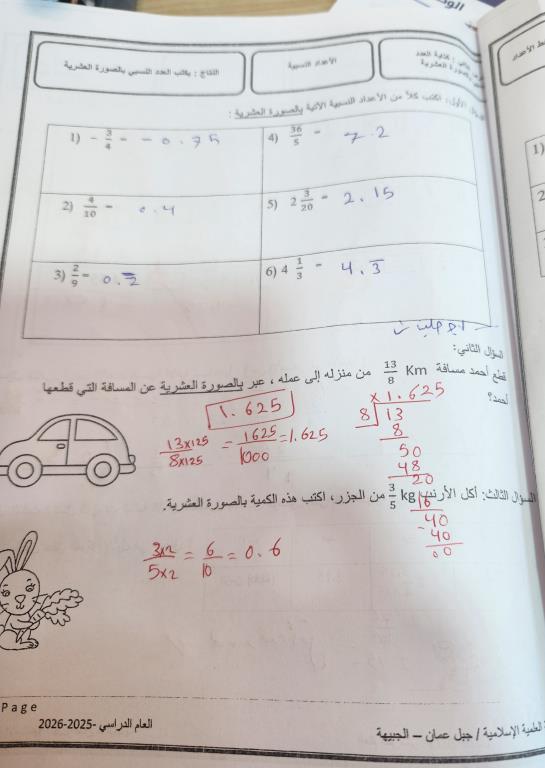 عنوان الدرس : كتابة العدد
بالصورة العشرية
الأعداد النسبية
النتاج : يكتب العدد النسبي بالصورة العشرية
السؤال الأول: اكتب كلاً من الأعداد النسبية الآتية بالصورة العشرية :
1) - 3/4 = - 0.75
4) 36/5 = 7.2
2) 4/10 = 0.4
5) 2 3/20 = 2.15
3) 2/9 = 0.2̅
6) 4 1/3 = 4.3̅
السؤال الثاني:
قطع أحمد مسافة 13/8 Km من منزله إلى عمله ، عبر بالصورة العشرية عن المسافة التي قطعها
أحمد؟
1.625
13x125/8x125 = 1625/1000 = 1.625
x 1.625
8 13
8
50
48
20
16
- 40
40
00
السؤال الثالث: أكل الأرنب 3/5 kg من الجزر، اكتب هذه الكمية بالصورة العشرية.
3x2/5x2 = 6/10 = 0.6
Page
العام الدراسي -2025-2026
العلمية الإسلامية / جبل عمان – الجبيهة
1)
2